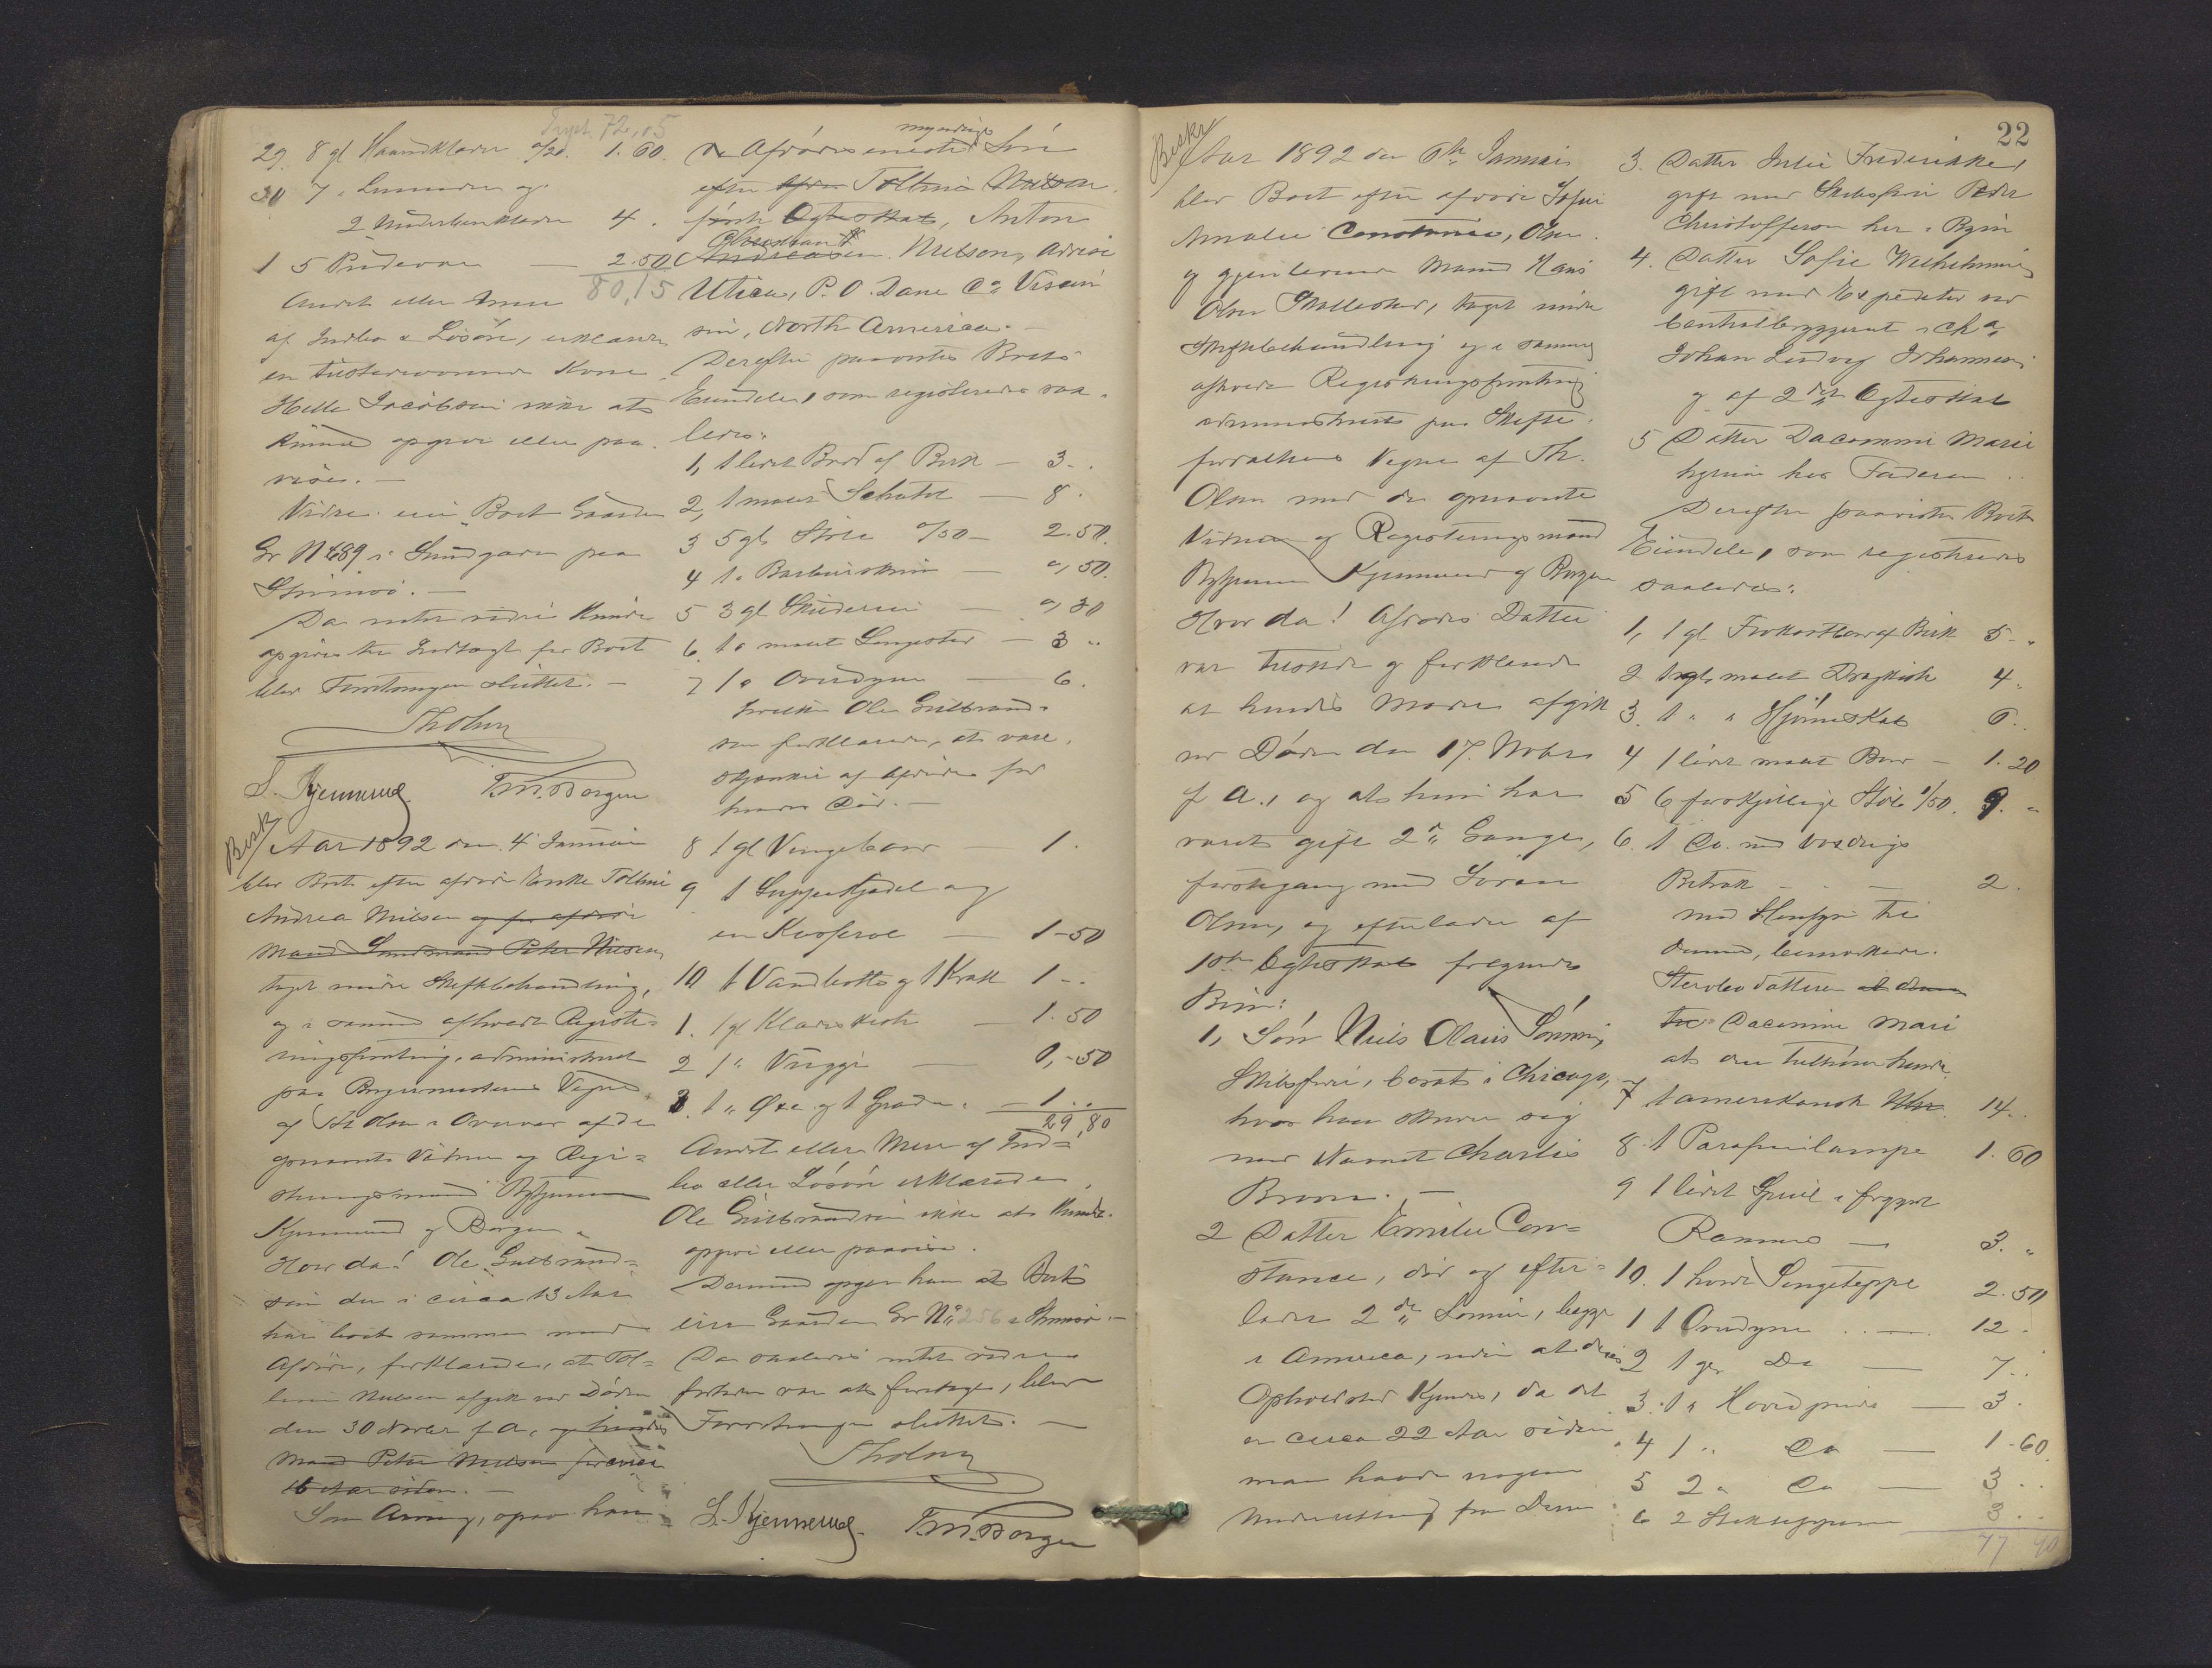 Trspt 72,05
29. 8 gl Haandklæder a/20. 1.60.
30 7 " Lommeduge og
2 Underbenklæder 4 .
1 5 Pudevar — 2.50
80,15
Andet eller mere
af Indbo & Løsøre, erklærede
en tilstedeværende Kone
Helle Jacobsen ikke at
kunne opgive eller paa-
vise. —
Videre eier Boet Gaarden
Gr N 689 i Grundgaden paa
Da intet videre kunde
opgives til Indtægt for Boet
blev Forretningen sluttet. —
Th Olsen
S. Kjennerud. T. M. Borgen
Besk
Aar 1892 den 4 Januar
blev Boet efter afdøde Enke Tolline
Andrea Nielsen og før afdøde
Mand Sandmand Peter Nielsen,
taget under Skiftebehandling,
og i samme afholdt Registe-
ringsforretning, administreret
paa Borgermesterens Vegne
af Th Olsen i Overvær af de
opnævnte Vidner og Regi-
streringsmænd
Kjennerud og Borgen.
Hvor da! Ole Gulbrand-
sen der i circa 13 Aar
har boet sammen med
Afdøde, forklarede, at Tol-
line Nielsen afgik ved Døden
den 30 Novbr f A., og hendes
Mand Peter Nielsen for circa
16 Aar siden. —
Som Arving, opgav han
myndige
den Afdødes eneste Søn
efter Tolline Nielsen
første Ægteskab, Anton
Christian
Andreasen Nielsen, Adresse
Utica, P. O. Dane Co Viscon
sin, North America. —
Derefter paavistes Boets
Eiendele, som registreredes saa-
ledes:
1, 1 lidet Bord af Birk — 3 ..
2, 1 malet Schatol — 8 .
3 5 gl Stole a/50 — 2.50.
4 1 " Barberskrin — 0,50.
5 3 gl Skilderier — 0,30
6. 1 " malet Sengested — 3 ..
7 1 " Overdyne — 6.
hvilke Ole Gulbrand-
sen forklarede, at være
skjænket af Afdøde før
hendes Død. —
8 1 gl Vingebord — 1 .
9 1 Suppekjedel og
en Kasserol — 1-50
10 1 Vandbøtte og 1 Krak 1 ..
1. 1 gl Klædeskiste — 1.50
2 1 " Vugge — 0,-50
3. 1 " Øxe og 1 Grade. — 1 ..
29,80
Andet eller Mere af Ind-
bo eller Løsøre erklærede
Ole Gulbrandsen ikke at kunde
opgive eller paavise.
Dermed opgav han at Boet
eier Gaarden Gr No 256 i Strømsø. —
Da saaledes intet videre
forhen var at foretage, blev
Forretningen sluttet. —
Th Olsen
S. Kjennerud. T. M. Borgen
22
Beskr
Aar 1892 den 6te Januar
blev Boet efter afdøde Sofie
Amalie Constance, Olsen
og gjenlevende Mand Hans
Olsen Skollestad, taget under
Skiftebehandling og i samme
afholdt Registreringsforretning
administreret paa Skifte-
forvalterens Vegne af Th.
Olsen med de opnævnte
Vidner og Registeringsmænd
Kjennerud og Borgen
Hvor da! Afdødes Datter
var tilstede og forklarede
at hendes Moder afgik
ved Døden den 17. Novbr
f A., og at hun har
været gift 2de Gange,
førstegang med Søren
Olsen, og efterlader af
1ste Ægteskab følgende
Børn:
1, Søn Niels Olaus Sørensen,
Skibsfører, bosat i Chicago,
hvor han skriver sig
med Navnet Charlis
Brown. —
2 Datter Emilie Con-
stance, død og efter-
lader 2de Sønner, begge
i America, uden at deres
Opholdsted kjendes, da det
er circa 22 Aar siden
man havde nogen
Underretning fra Dem
3. Datter Julie Frederikke,
gift med Skibsfører Peder
Christoffersen her i Byen
4. Datter Sofie Wilhelmine
gift med Expeditør ved
Centralbryggeriet i Ch a
Johan Ludvig Johannesen
og af 2det Ægteskab
5 Datter Dacomine Marie
hjemme hos Faderen ..
Derefter paavistes Boets
Eiendele, som registreredes
saaledes:
1, 1 gl Frokostbord af Birk 5 - "
2 1 gl malet Dragkiste 4 "
3. 1 " " Hjørneskab 6 ..
4 1 lidet malet Bord — 1.20
5 6 forskjellige Stole 1/50. 9. "
6. 1 Do. med voxdugs
Betræk — 2 .
med Hensyn til
denne, bemærkede
Stervbodatteren at denne
Dacomine Mari
at den tilhører hende
7 1 amerikansk Uhr. 14 ..
8. 1 Parafinlampe 1.60
9 1 lidet Speil i forgyldt
Ramme — 3. "
10. 1 hvidt Sengeteppe 2.50
1 1 Overdyne .. — 12 .
2 1 gl Do — 7 ..
3. 1 " Hovedpude — 3 .
4 1 " Do — 1-60.
5 2 " Do — 3 ..
6 2 3 ..
77 40